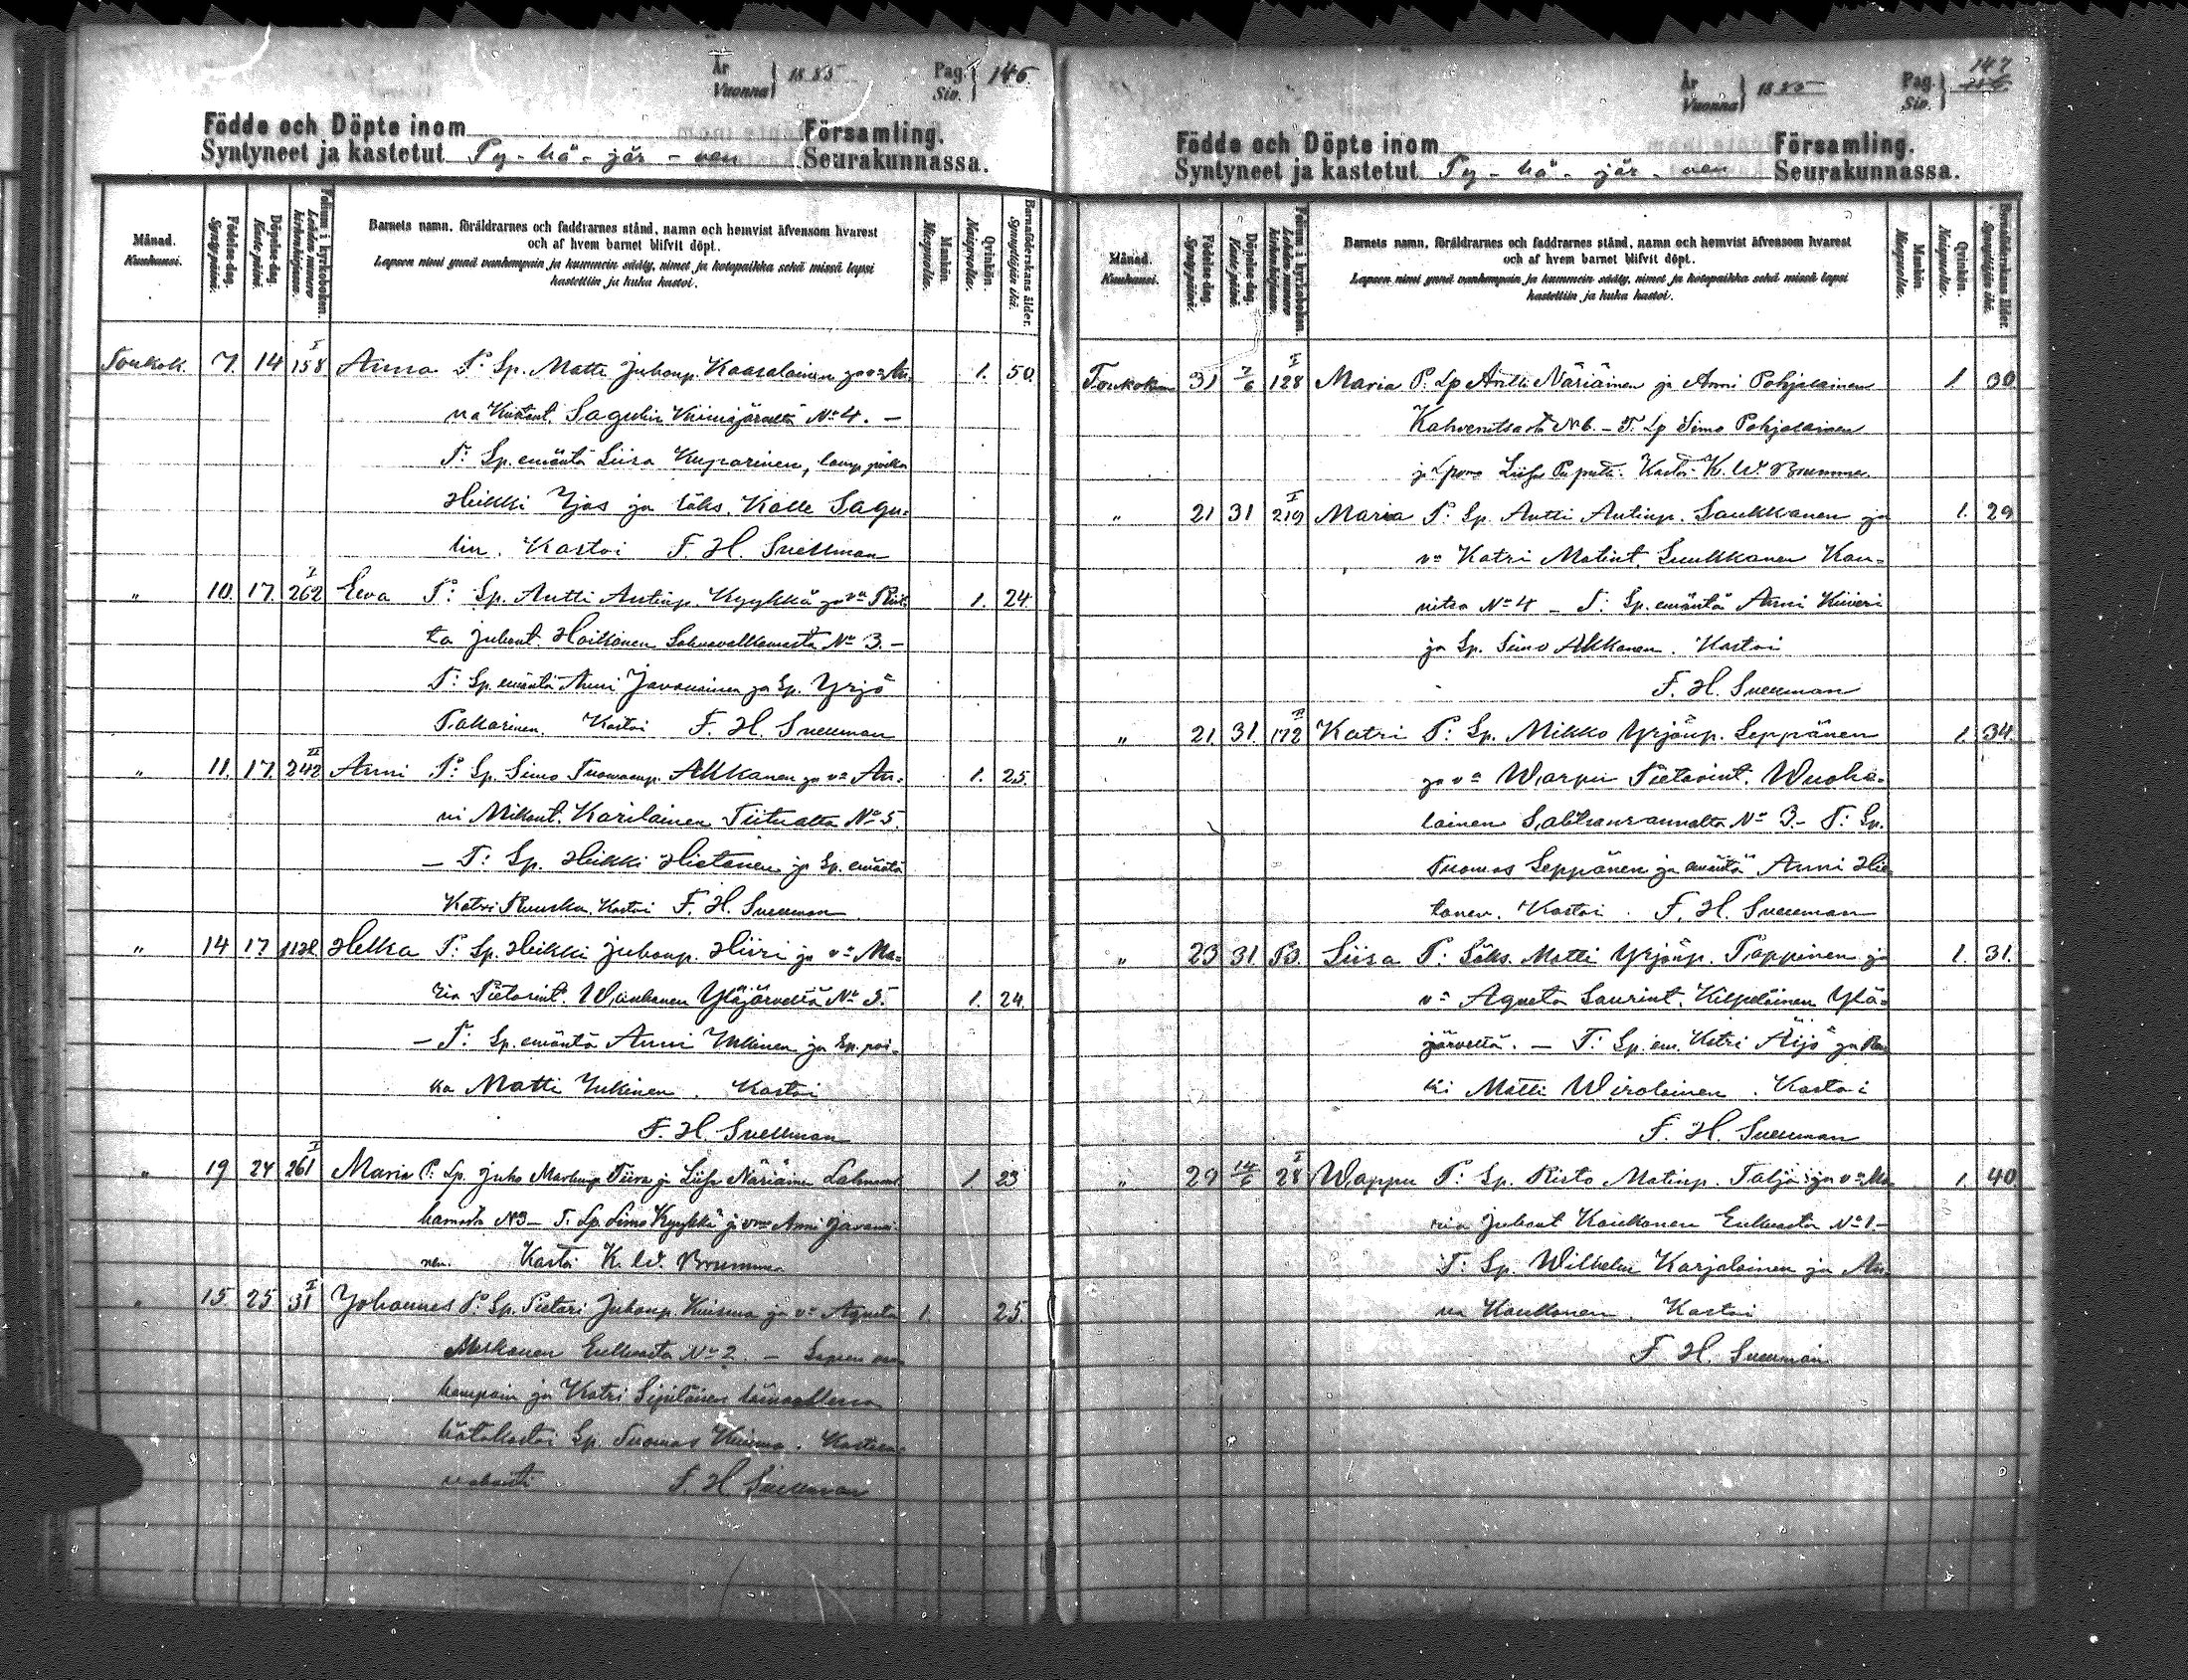 År
Vuonna } 1885
Pag.
Siv. } 146.
Födde och Döpte inom Församling.
Syntyneet ja kastetut Py-hä-jär-ven Seurakunnassa.
Månad.
Kuukausi.
Födelse-dag.
Syntypäivä.
Döpelse-dag.
Kaste päivä.
Folium i kyrkoboken.
Lehden numero kirkonkirjassa.
Barnets namn, föräldrarnes och faddrarnes stånd, namn och hemvist äfvensom hvarest
och af hvem barnet blifvit döpt.
Lapsen nimi ynnä vanhempain ja kummein sääty, nimet ja kotopaikka sekä missä lapsi
kastettiin ja kuka kastoi.
Mankön.
Miespuolia.
Qvinkön.
Naispuolia.
Barnaföderskans ålder.
Synnyttäjän ikä.
Toukok. 7. 14 I 158 Anna P: Sp. Matti Juhonp. Kaasalainen ja va An- 1. 50.
na Sagulin Kiimajärveltä No 4. –
T: Sp. emäntä Liisa Kuparinen, poika
Heikki Yjäs ja läks. Kalle Sagu-
lin. Kastoi F. H. Snellman
" 10. 17. I 262 Eeva P: Sp. Antti Antinp. Kyykkä ja va Riit- 1. 24.
ta Juhont. Hoikkanen No 3. –
T: Sp. emäntä Anni Javanainen ja Sp. Yrjö
Pakarinen. Kastoi F. H. Snellman
" 11. 17. II 242 Anni P: Sp. Simo Tuomaanp. Akkanen ja va An- 1. 25.
ni Mikont. Karilainen Tiitualta No 5.
– T: Sp. Heikki Hietanen ja Sp. emäntä
Katri Ruuska. Kastoi F. H. Snellman
" 14 17 Helka P: Sp. Heikki Juhonp. Hiiri ja va Ma-
ria Pietarint. Yläjärveltä No 5. 1. 24.
– T: Sp. emäntä Anni Inkinen ja Sp. poi-
ka Matti Inkinen. Kastoi
F. H. Snellman
" 19 24 I 261 Maria P. Sp. Juho Markunp Tiira ja Liisa Näriäinen 1 23
No 3 – T. Sp. Simo Kyykkä ja vmo Anni Javanai-
nen. Kastoi K. W. Brummer
" 15. 25 I 31 Johannes P: Sp. Pietari Juhonp. Kuisma ja va Agneta 1. 25.
Meskanen Enkuasta No 2. – Lapsen van-
hempain ja Katri Sipiläisen läsnäollessa
hätäkastoi Sp. Tuomas Kuisma. Kasteen
vahvisti F. H. Snellman
År
Vuonna } 1885
Pag.
Siv. } 147
Födde och Döpte inom Församling.
Syntyneet ja kastetut Py-hä-jär-ven Seurakunnassa.
Månad.
Kuukausi.
Födelse-dag.
Syntypäivä.
Döpelse-dag.
Kaste päivä.
Folium i kyrkoboken.
Lehden numero kirkonkirjassa.
Barnets namn, föräldrarnes och faddrarnes stånd, namn och hemvist äfvensom hvarest
och af hvem barnet blifvit döpt.
Lapsen nimi ynnä vanhempain ja kummein sääty, nimet ja kotopaikka sekä missä lapsi
kastettiin ja kuka kastoi.
Mankön.
Miespuolia.
Qvinkön.
Naispuolia.
Barnaföderskans ålder.
Synnyttäjän ikä.
Toukokuu 31 7/6 I 128 Maria P. Lp Antti Näriäinen ja Anni Pohjalainen 1 30
Kahvenitsasta No 6. – T. Lp Simo Pohjalainen
ja Lpvmo Liisa Paputti. Kastoi K. W. Brummer
" 21 31 I 219 Maria P: Sp. Antti Antinp. Saukkanen ja 1. 29
va Katri Matint. Suukkanen Kau-
nitsa No 4 – T: Sp. emäntä Anni Kiiveri
ja Sp. Simo Akkanen. Kastoi
F. H. Snellman
" 21. 31. II 172 Katri P: Sp. Mikko Yrjönp. Seppänen 1. 34.
ja va Warpu Pietarint. Wuoha-
lainen Salitsanrannalta No 3. – T: Sp.
Tuomas Seppänen ja emäntä Anni Hie-
tanen. Kastoi. F. H. Snellman
" 23 31. Liisa P: Läks. Matti Yrjönp. Pappinen ja 1. 31.
va Agneta Laurint. Kilpeläinen Ylä-
järveltä. – T: Sp. em. Katri Äijö ja Ren-
ki Matti Wirolainen. Kastoi
F. H. Snellman
" 29 14/6 I 28 Wappu P: Sp. Risto Matinp. Talja ja va Ma- 1. 40
ria Juhont Kaukonen Enkuasta No 1. –
T: Sp. Wilhelm Karjalainen ja An-
na Kaukonen. Kastoi
F. H. Snellman